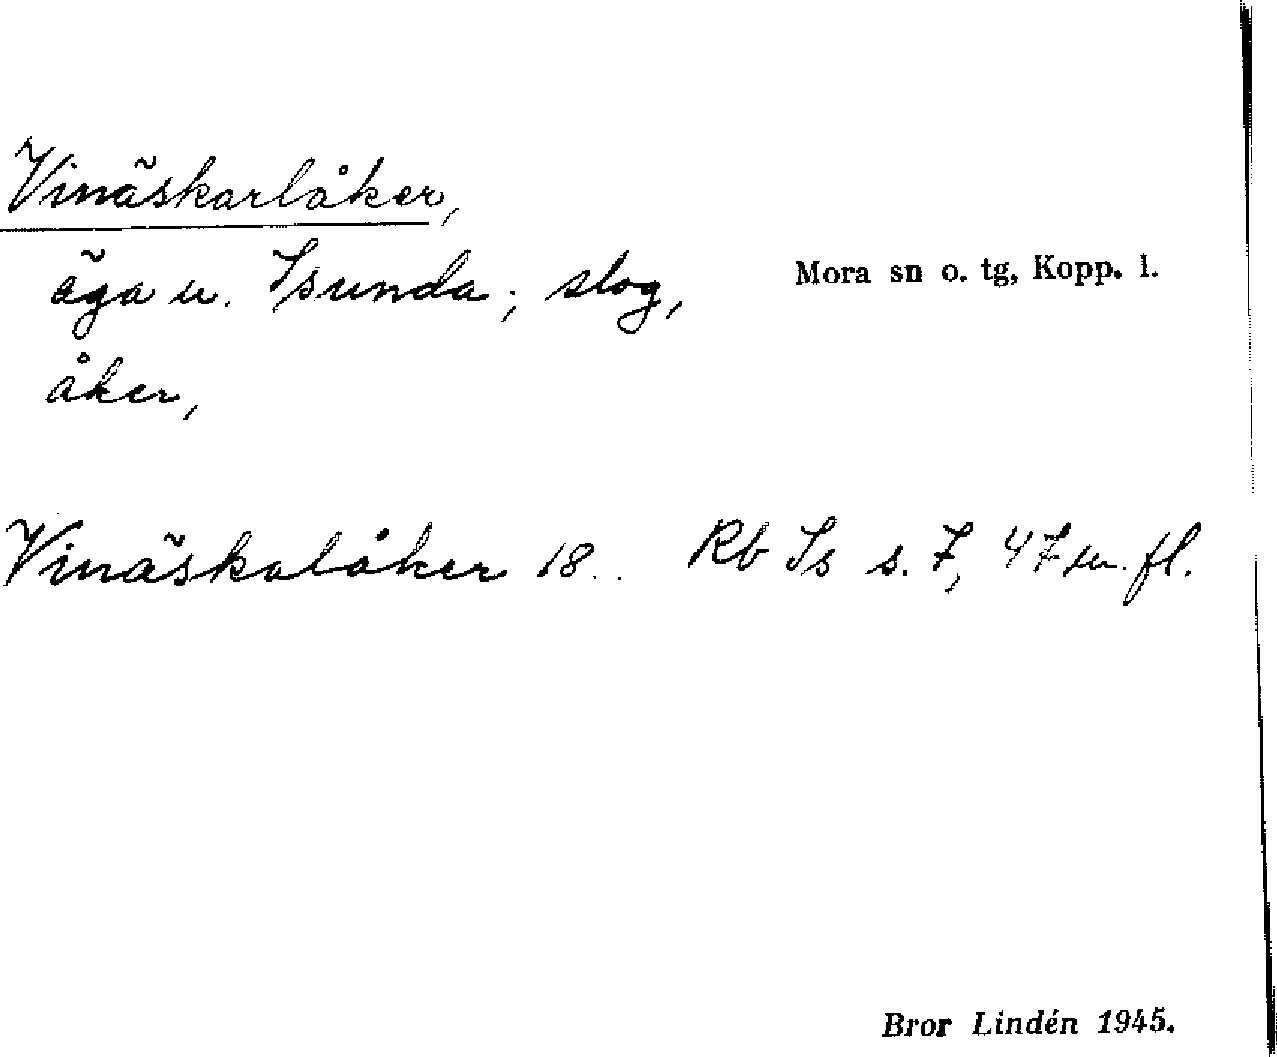 Vinäskarlåker,
äga u. Isunda; slog,
Mora sn o. tg, Kopp. l.
åker,
Vinäskalåker 18.. Rb Is s. 7, 47 m. fl.
Bror Lindén 1945.